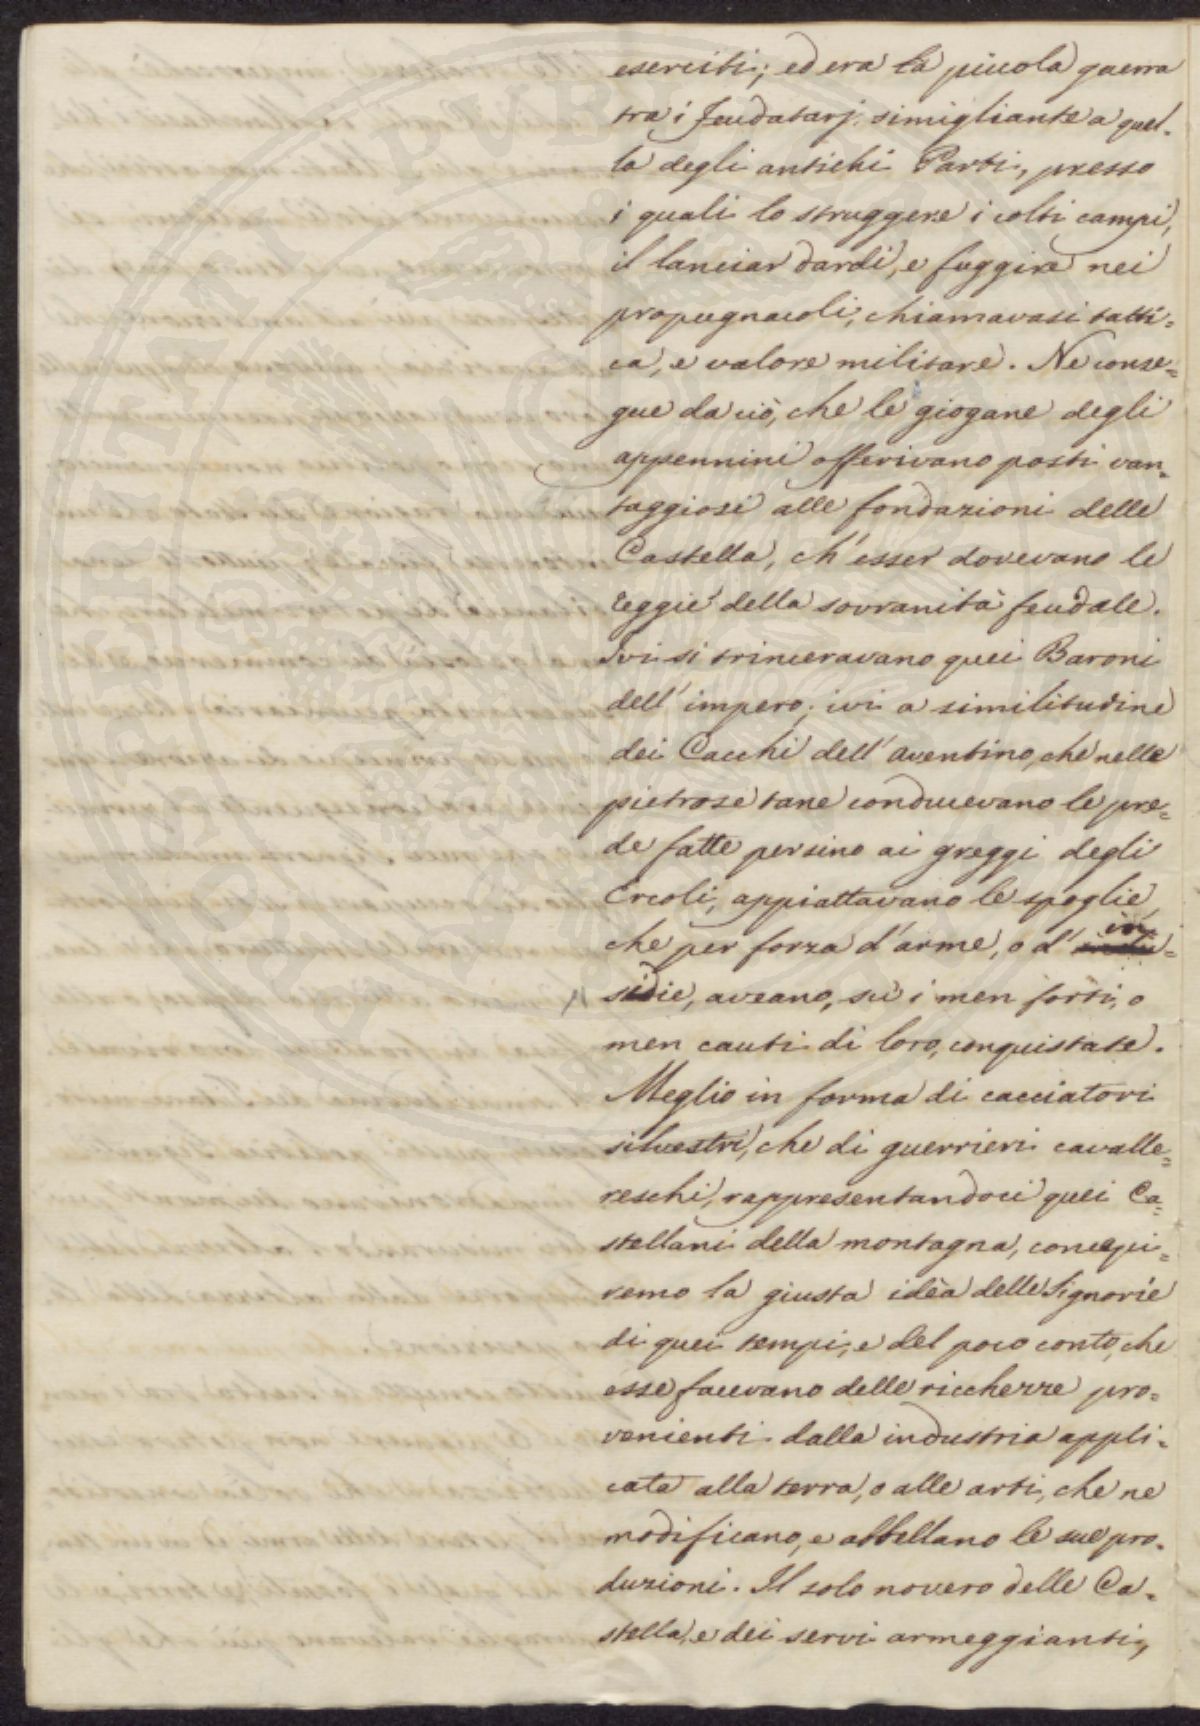 eserciti; ed era la piccola guerra
tra i feudatarj, simigliante a quel-
la degli antichi Parti, presso
i quali lo struggere i colti campi,
il lanciar dardi, e fuggire nei
propugnacoli, chiamavasi tatti=
ca, e valore militare. Ne conse=
gue da ciò, che le giogane degli
appennini offerivano posti van=
taggiosi alle fondazioni delle
Castella, ch'esser dovevano le
reggie della sovranità feudale.
Ivi si trinceravano quei Baroni
dell'impero; ivi a similitudine
dei Cacchi dell'aventino, che nelle
pietrose tane conducevano le pre=
de fatte persino ai greggi degli
Ercoli, appiattavano le spoglie
che per forza d'arme, o d' in=
sidie, aveano, su i men forti, o
men cauti di loro, conquistate.
Meglio in forma di cacciatori
silvestri, che di guerrieri cavalle=
reschi, rappresentandoci quei Ca=
stellani della montagna, concepi=
remo la giusta idèa delle Signorie
di quei tempi, e del poco conto, che
esse facevano delle ricchezze pro=
venienti dalla industria appli=
cata alla terra, o alle arti, che ne
modificano, e abbellano le sue pro-
duzioni. Il solo novero delle Ca-
stella, e dei servi armeggianti,